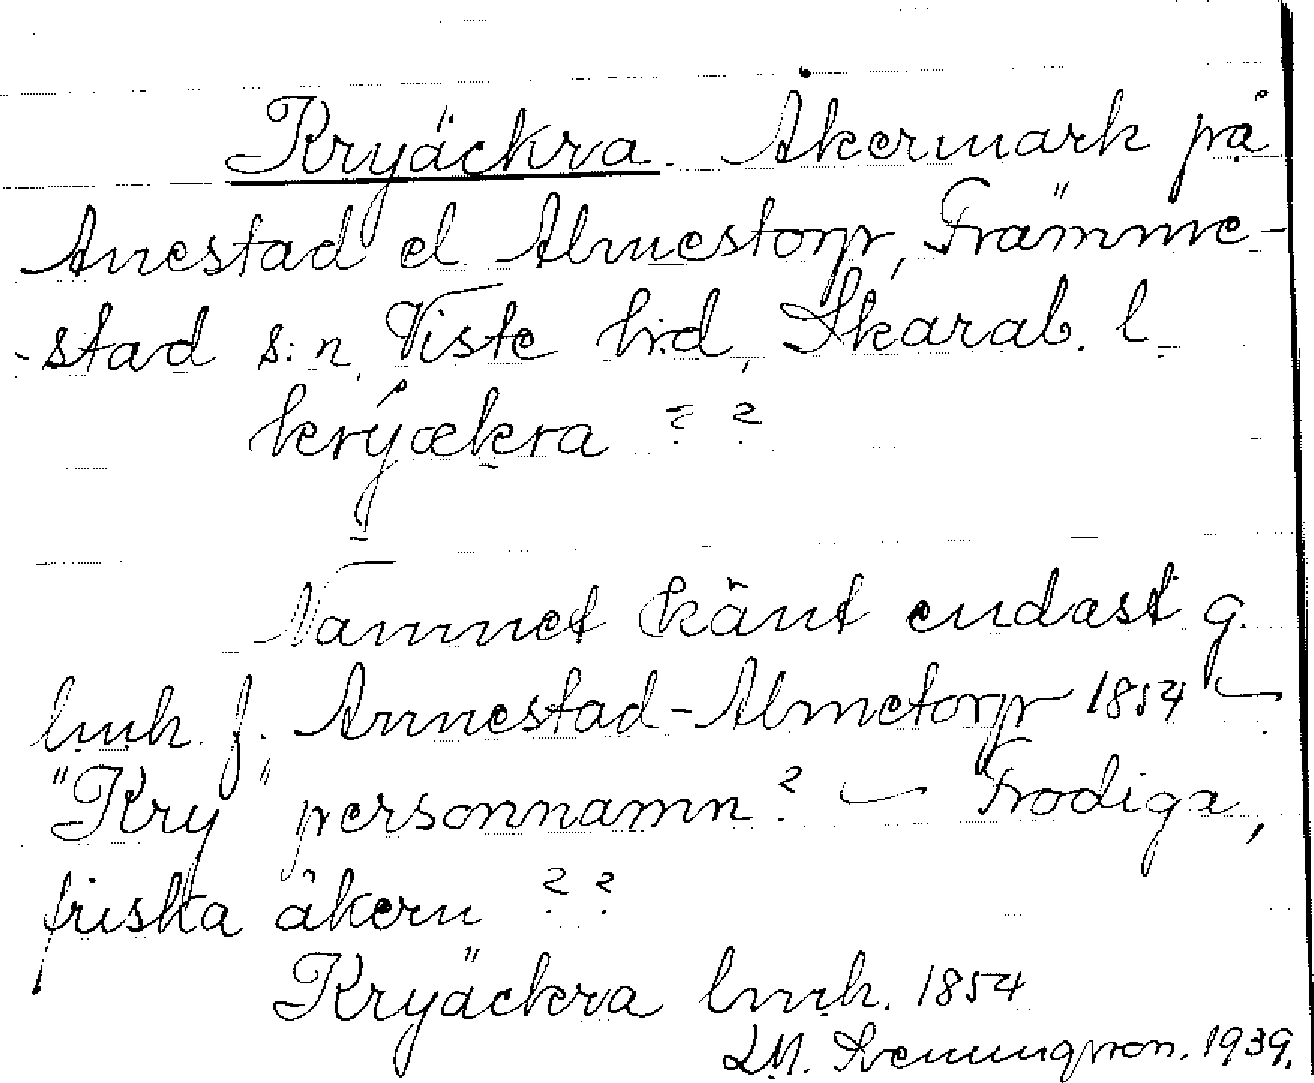 Kryäckra. Åkermark på
Anestad el Almestorp, Främme-
-stad s:n, Viste h:d, Skarab. l.
krýækra ? ?
Namnet känt endast g.
lmh. f. Annestad-Almetorp 1854 –
"Kry" personnamn? – Frodiga,
friska åkern ? ?
Kryäckra lmh. 1854
L.M. Svenungsson. 1939.